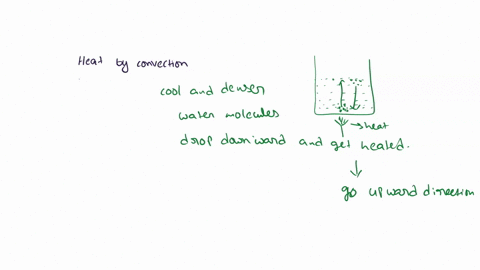 Heat by convection
cool and denser
water molecules
→ heat
drop downward and get heated.
go upward direction